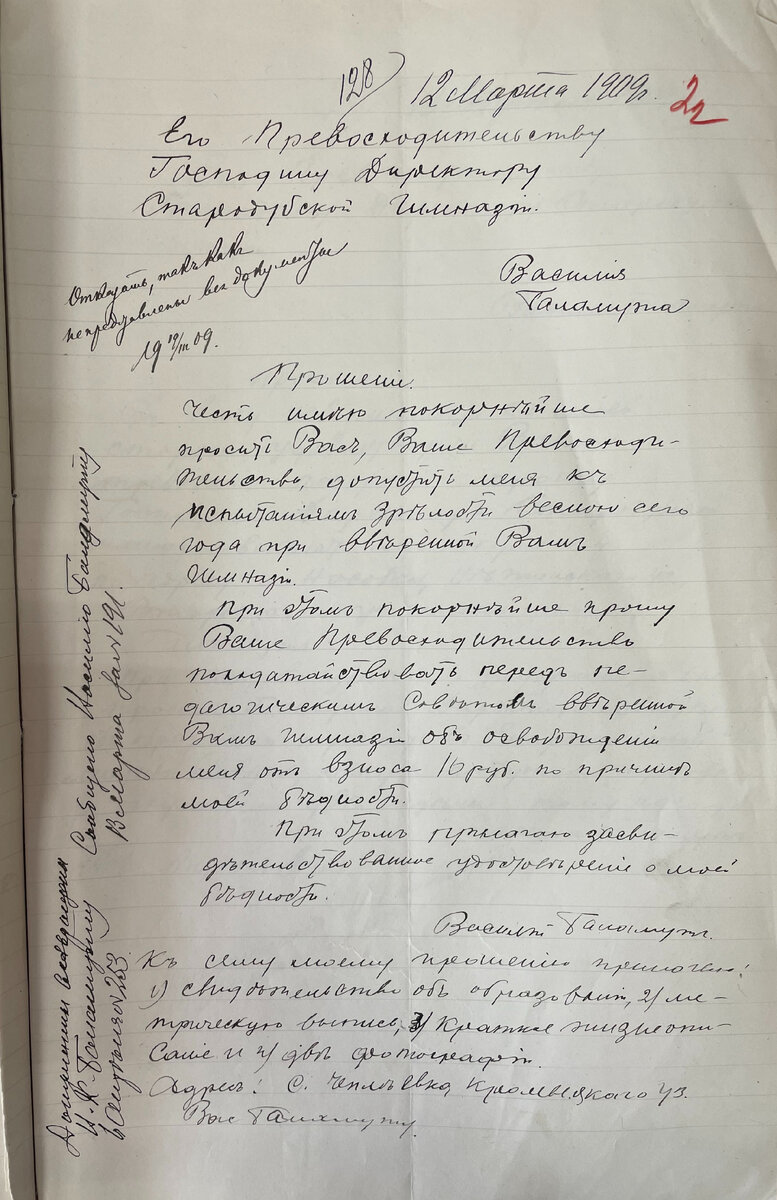 128) 12 Марта 1909г. 22
Его Превосходительству
Господину Директору
Стародубской Гимназіи.
Отказать, такъ какъ
не представлены все документы
19 19/III 09.
Василія
Галамуша
Прошеніе.
Честь имѣю покорнѣйше
просить Васъ, Ваше Превосходи-
тельство, допустить меня къ
испытаніямъ зрѣлости весною сего
года при ввѣренной Вамъ
Гимназіи.
При этомъ покорнѣйше прошу
Ваше Превосходительство
походатайствовать передъ пе-
дагогическимъ Совѣтомъ ввѣренной
Вамъ гимназіи объ освобожденіи
меня отъ взноса 10 руб. по причинѣ
моей бѣдности.
При этомъ прилагаю засви-
дѣтельствованное удостовѣреніе о моей
бѣдности.
Василій
Къ сему моему прошенію прилагаю:
1) свидѣтельство объ образованіи, 2) ме-
трическую выпись, 3) Краткое жизнеопи-
саніе и 4) двѣ фотографіи.
Адресъ: С. Чеплѣевка Кролевецкаго уз.
Вас
Сообщено Василію
Марта за № 191.
Документы
за № 253